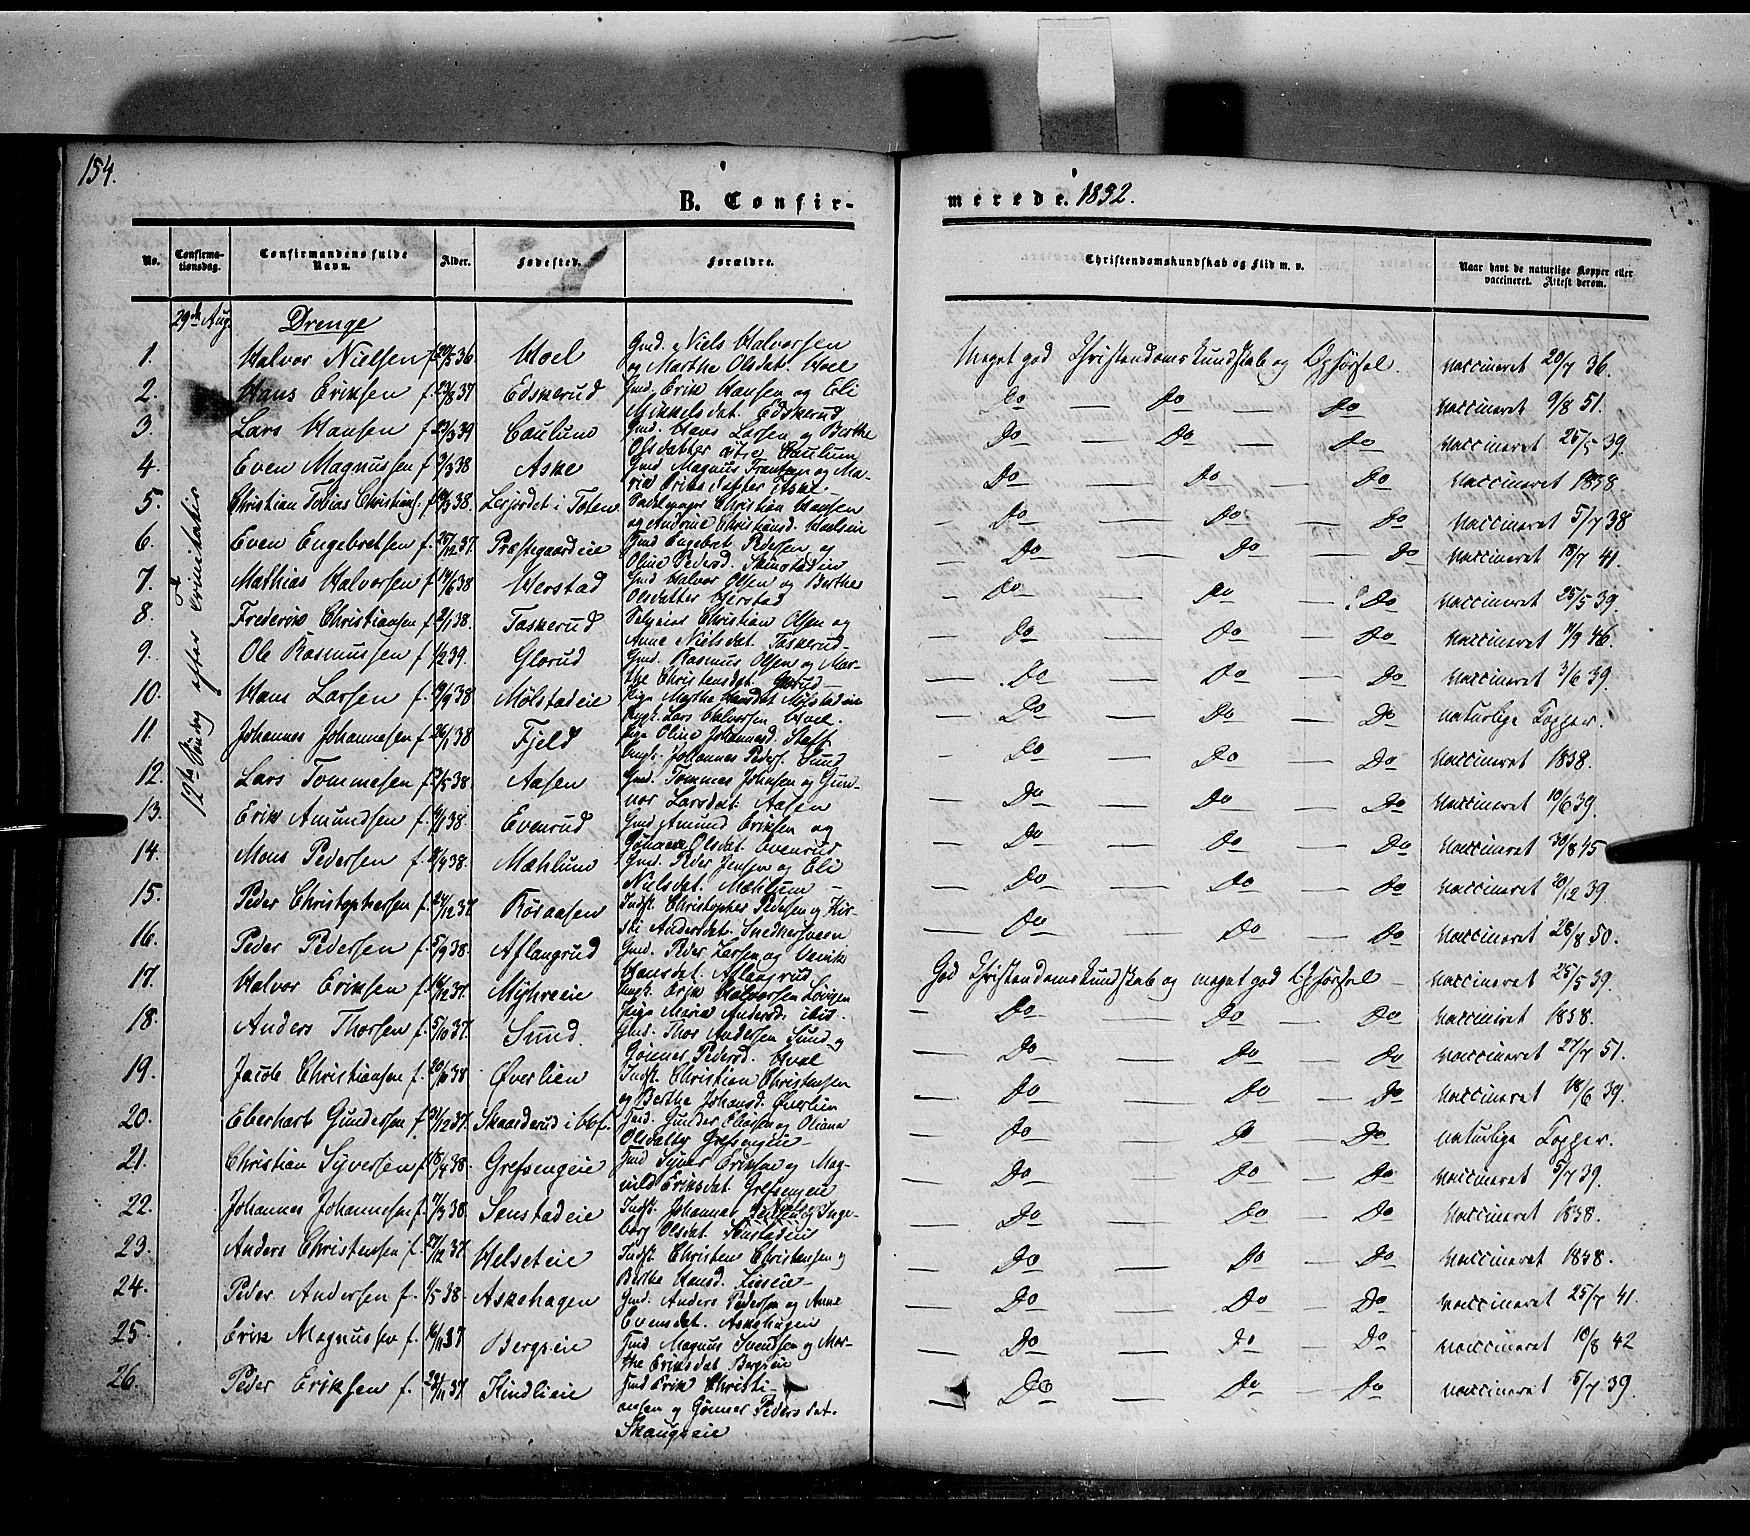 154.
B. Confirmerede. 1852.
No. Confirmationsdag. Confirmandens fulde Navn. Alder. Fødested. Forældre. Christendomskundskab og Flid m. v. Naar havt de naturlige Kopper eller vaccineret. Attest derom.
29de Aug. Drenge
12te Søndag efter Trinitatis
1. Halvor Nielsen f. 36 Hoel Gmd. Niels Halvorsen og Marthe Olsdat. Hoel Meget god Christendomskundskab og Opførsel. vaccineret 20/7 36.
2. Hans Eriksen f. 23/8 37 Edskerud Gmd. Erik Hansen og Eli Mikkelsdat. Edskerud Do — Do — Do vaccineret 9/8 51.
3. Lars Hansen f. 23/3 39 Caulund Gmd. Hans Larsen og Berthe Olsdatter Caulum Do — Do — Do vaccineret 25/5 39.
4. Even Magnussen f. 38 Aske Gmd Magnus Frantsen og Maria Eriksdatter Aske Do — Do — Do vaccineret 1838
5. Christian Tobias Christians. f. 38. i Toten Christian Hansen og Andrine Christiansd. Do — Do — Do vaccineret 5/7 38
6. Even Engebretsen f. 25/12 37. Præstegaardeie Gmd Engebret Pedersen og Oline Pedersd. Do — Do — Do vaccineret 18/7 41.
7. Mathias Halvorsen f. 14/6 38 Herstad Gmd Halvor Olsen og Berthe Olsdatter Herstad Do — Do — Do vaccineret 25/5 39.
8. Frederik Christiansen f. 2/1 38. Taskerud Selveier Christian Olsen og Anne Nielsdat. Taskerud Do — Do — Do vaccineret 46
9. Ole Rasmussen f. 1/2 39. Glorud Gmd. Rasmus Olsen og Marthe Christensdat. Glorud Do — Do — Do vaccineret 3/6 39.
10. Hans Larsen f. 38 Mølstadeie Pige Marthe Hansdat Mølstadeie Ungk. Lars Halvorsen Hoel. Do — Do — Do naturlige Kopper.
11. Johannes Johannesen f. 26/1 38 Fjeld Pige Oline Johannesd. Staft Ungk. Johannes Peders. Sund Do — Do — Do vaccineret 1838.
12. Lars Tommesen f. 38. Aasen Gmd. Tommes Johnsen og Gunnor Larsdat. Aasen Do — Do — Do vaccineret 10/6 39.
13. Erik Amundsen f. 38. Evenrud Gmd Amund Eriksen og Olsdat. Evenrud Do — Do — Do vaccineret 30/8 45
14. Mons Pedersen f. 38. Mæhlum Gmd. Peder Jensen og Eli Nielsdat. Mæhlum — Do — Do — Do vaccineret 20/12 39.
15. Peder Christophersen f. 37 Røraasen Indst. Christopher Pedersen og Kirsti Andersdat. Snedkersveen Do — Do — Do vaccineret 28/8 50.
16. Peder Pedersen f. 5/9 38. Aflangrud Gmd. Peder Larsen og Hansdat. Aflangrud God Christendomskundskab og meget god Opførsel — vaccineret 25/5 39.
17. Halvor Eriksen f. 16/12 37. Myhreeie Ungk. Erik Halvorsen Pige Maria Andersd. ibid. Do — Do — Do vaccineret 1838.
18. Anders Thorsen f. 5/10 37. Sund. Gmd. Thor Andersen Sund og Gønner Pedersd. Hval Do — Do — Do vaccineret 27/7 51.
19. Jacob Christiansen f. 38 Øverlien Indst. Christian Christensen og Berthe Johansd. Øverlien Do — Do — Do vaccineret 18/6 39.
20. Eberhart Gundersen f. 31/12 37. Skaarderud i Gmd. Gunder Eliasen og Oliana Olsdatter Grefsengeie — Do — Do — Do naturlige Kopper.
21. Christian Syversen f. 18/4 38. Grefsengeie Gmd Syver Eriksen og Magnild Eriksdat. Grefsengeie Do — Do — Do vaccineret 5/7 39.
22. Johannes Johannesen f. 38 Sønstadeie Indst. Johannes og Ingeborg Olsdat. Sønstadeie Do — Do — Do vaccineret 1838.
23. Anders Christensen f. 27/12 37. Helseteie Indst. Christen Christensen og Berthe Hansd. Do — Do — Do vaccineret 1838.
24. Peder Andersen f. 1/5 38. Askehagen Gmd. Anders Pedersen og Anne Evensdat. Askehagen Do — Do — Do vaccineret 25/7 41.
25. Erik Magnussen f. 16/11 37 Bergseie Gmd Magnus Svendsen og Marthe Eriksdat Bergseie Do — Do — Do vaccineret 10/8 42
26. Peder Eriksen f. 37. Kindlieie Gmd Erik Christiansen og Gønner Pedersdat. Skaugseie Do — Do — Do vaccineret 5/7 39.